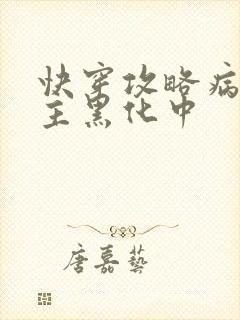 快穿攻略病
主黑化中
唐嘉艺